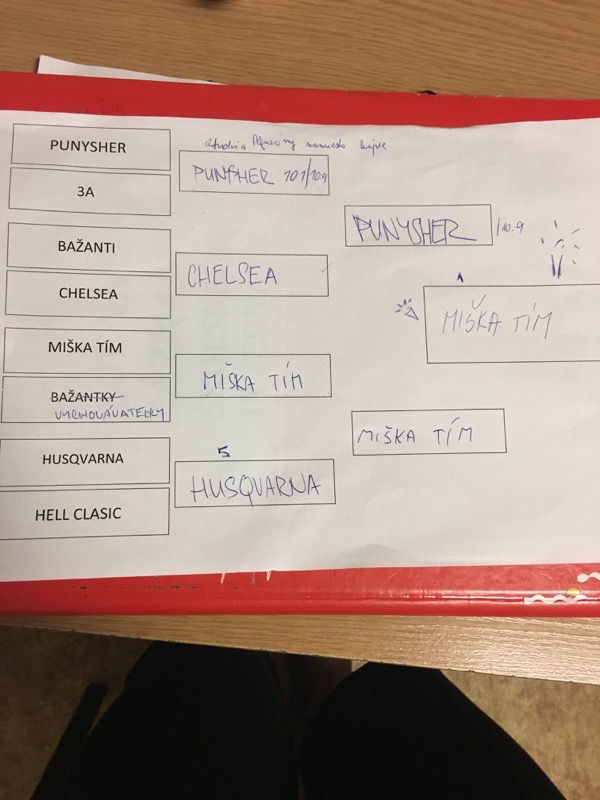 PUNYSHER
3A
BAŽANTI
CHELSEA
MIŠKA TÍM
BAŽANTKY
VYCHOVÁVATEĽKY
HUSQVARNA
HELL CLASIC
PUNYSHER 101/109
CHELSEA
MIŠKA TÍM
5
HUSQVARNA
PUNYSHER
MIŠKA TÍM
1
MIŠKA TÍM